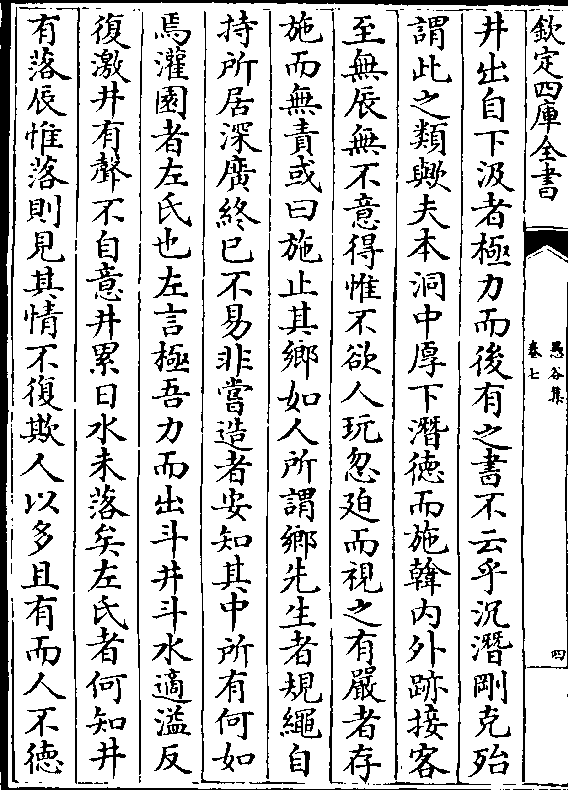 欽定四庫全書
愚谷集
卷七
四
井出自下汲者極力而後有之書不云乎沉潛剛克殆
謂此之類歟夫本洞中厚下潛徳而施韓内外跡接客
至無辰無不意得惟不欲人玩忽廹而視之有嚴者存
施而無責或曰施止其鄉如人所謂鄉先生者規繩自
持所居深廣終已不易非嘗造者安知其中所有何如
焉灌園者左氏也左言極吾力而出斗井斗水適溢反
復激井有聲不自意井累日水未落矣左氏者何知井
有落辰惟落則見其情不復欺人以多且有而人不徳